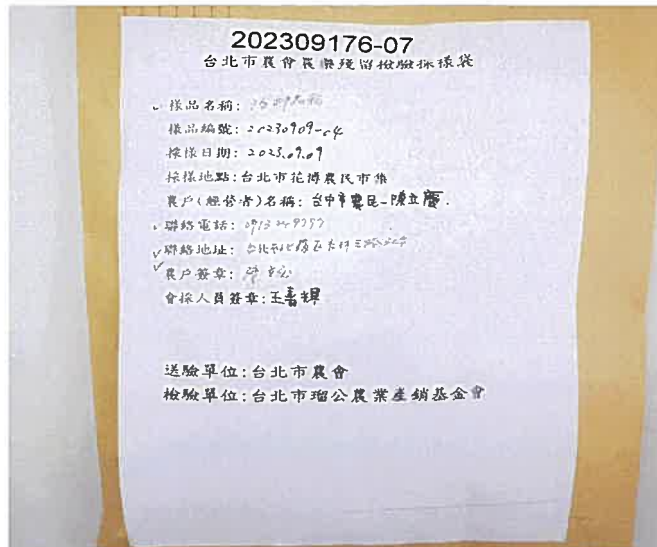 202309176-07
台北市農會農藥殘留檢驗採樣袋
樣品名稱:
樣品編號: 20230909-04
採樣日期: 2023.09.09
採樣地點:台北市花博農民市集
農戶(經營者)名稱: 台中市農民-陳立慶.
聯絡電話:
聯絡地址:
農戶簽章:
會採人員簽章:王嘉輝
送驗單位:台北市農會
檢驗單位:台北市瑠公農業產銷基金會